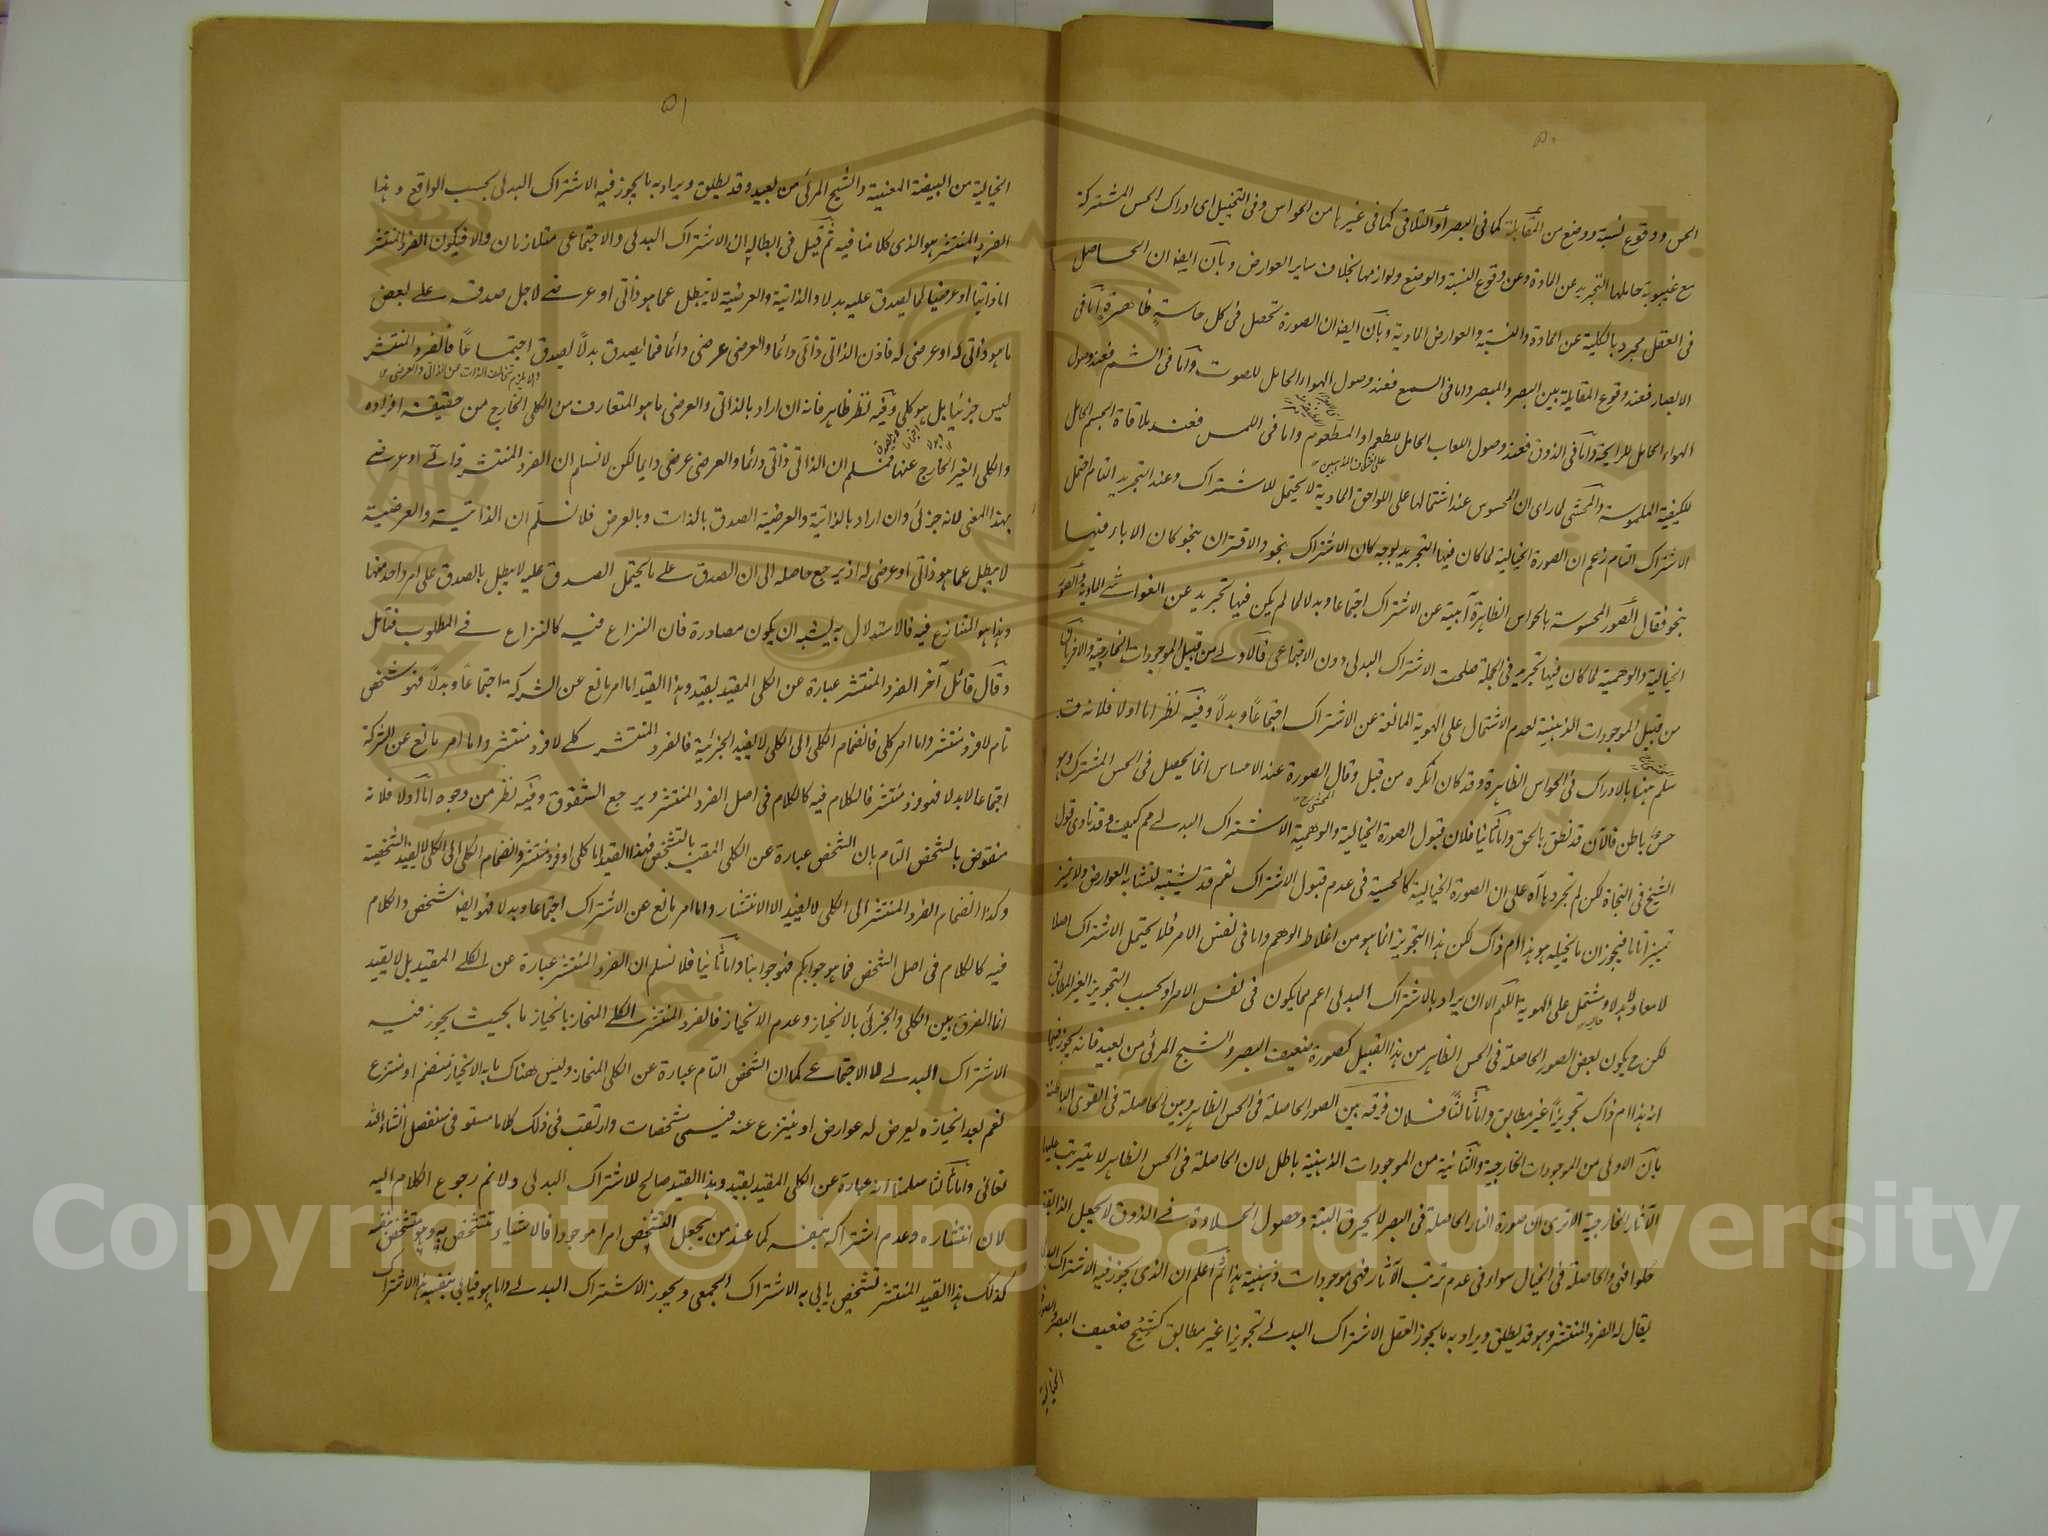 ٥٠
الحس ووقوع نسبة ووضع من المقابلة كما في البصر أو التلاقي كما في غيرها من الحواس وفي التخييل اي ادراك الحس المشترك
مع غيبوبة حاملها التجريد عن المادة وعن وقوع النسبة والوضع ولوازمها بخلاف ساير العوارض وبان ايضا ان الحاصل
في العقل مجرد بالكلية عن المادة والنسبة والعوارض المادية وبان ايضا ان الصورة تحصل في كل حاسة ظاهرة اما في
الابصار فعند وقوع المقابلة بين البصر والمبصر واما في السمع فعند وصول الهواء الحامل للصوت واما في الشم فعند وصول
الهواء الحامل للرايحة واما في الذوق فعند وصول اللعاب الحامل للطعم او المطعوم واما في اللمس فعند ملاقاة الجسم الحامل
للكيفية الملموسة والمحشى لما راى ان المحسوس عند اشتمالها على اللواحق المادية لا يحتمل للاشتراك وعند التجريد التام احتمل
الاشتراك التام زعم ان الصورة الخيالية لما كان فيها التجريد بوجه كان الاشتراك بنحو والاقتران بنحو كان الاباء فيها
بنحو فقال الصور المحسوسة بالحواس الظاهرة آبية عن الاشتراك اجتماعا وبدلا لما لم يكن فيها تجريد عن الغواشي المادية والصور
الخيالية والوهمية لما كان فيها تجريد في الجملة صلحت الاشتراك البدلي دون الاجتماعي فالاولى من قبيل الموجودات الخارجية والاخريان
من قبيل الموجودات الذهنية لعدم الاشتمال على الهوية المانعة عن الاشتراك اجتماعا وبدلا وفيه نظر اما اولا فلانه قد
سلم ههنا بالادراك في الحواس الظاهرة وقد كان انكره من قبل وقال الصورة عند الاحساس انما يحصل في الحس المشترك وهو
حس باطن فالآن قد نطق بالحق واما ثانيا فلان قبول الصورة الخيالية والوهمية الاشتراك البدلي مم كيف وقد نادى قول
الشيخ في النجاة لكن لم تجردها آه على ان الصورة الخيالية كالحسية في عدم قبول الاشتراك نعم قد يشتبه لتشابه العوارض ولا تميز
تميزا تاما فيجوز ان ما يخيله هو هذا ام ذاك لكن هذا التجويز انما هو من اغلاط الوهم واما في نفس الامر فلا يحتمل الاشتراك اصلا
لا معا ولا بدلا وتشتمل على الهوية اللهم الا ان يراد بالاشتراك البدلي اعم مما يكون في نفس الامر او بحسب التجويز الغير المطابق
لكن ح يكون بعض الصور الحاصلة في الحس الظاهر من هذا القبيل كصورة ضعيف البصر والشبح المرئي من بعيد فانه يجوز فيها
انه هذا ام ذاك تجويزا غير مطابق واما ثالثا فلان فرقه بين الصور الحاصلة في الحس الظاهر وبين الحاصلة في القوى الباطنة
بان الاولى من الموجودات الخارجية والثانية من الموجودات الذهنية باطل لان الحاصلة في الحس الظاهر لا يترتب عليها
الآثار الخارجية الا ترى ان صورة النار الحاصلة في البصر لا يحرق البتة وحصول الحلاوة في الذوق لا يجعل الذائقة
حلوا فهي والحاصلة في الخيال سواء في عدم ترتب الآثار فهي موجودات ذهنية هذا ثم اعلم ان الذي يجوز فيه الاشتراك
يقال له الفرد المنتشر وهو قد يطلق ويراد به ما يجوز العقل الاشتراك البدلي تجويزا غير مطابق كشبح ضعيف البصر والصورة
الخيالية
٥١
الخيالية من البيضة المعينة والشبح المرئي من بعيد وقد يطلق ويراد به ما يجوز فيه الاشتراك البدلي بحسب الواقع وهذا
الفرد المنتشر هو الذي كلامنا فيه ثم قيل في ابطاله ان الاشتراك البدلي والاجتماعي متلازمان والا فيكون الفرد المنتشر
اما ذاتيا او عرضيا لما يصدق عليه بدلا والذاتية والعرضية لا يبطل عما هو ذاتي او عرضي لاجل صدقه على بعض
ما هو ذاتي له او عرضي له فاذن الذاتي ذاتي دائما والعرضي عرضي دائما فما يصدق بدلا يصدق اجتماعا فالفرد المنتشر
والا يلزم تخلف الذات عن الذاتي والعرضي
ليس جزئيا بل هو كلي وفيه نظر ظاهر فانه ان اراد بالذاتي والعرضي ما هو المتعارف من الكلي الخارج من حقيقة افراده
والكلي الغير الخارج عنها فمسلم ان الذاتي ذاتي دائما والعرضي عرضي دائما لكن لا نسلم ان الفرد المنتشر ذاتي او عرضي
بهذا المعنى لانه جزئي وان اراد بالذاتية والعرضية الصدق بالذات وبالعرض فلا نسلم ان الذاتية والعرضية
لا يبطل عما هو ذاتي او عرضي له اذ يرجع حاصله الى ان الصدق على ما يحتمل الصدق عليه لا يبطل بالصدق على امر واحد منها
وهذا هو المتنازع فيه فالاستدلال به يشبه ان يكون مصادرة فان النزاع فيه كالنزاع في المطلوب فتأمل
وقال قائل آخر الفرد المنتشر عبارة عن الكلي المقيد بقيد وهذا القيد اما امر مانع عن الشركة اجتماعا وبدلا فهو شخص
تام لا فرد منتشر واما امر كلي فانضمام الكلي الى الكلي لا يفيد الجزئية فالفرد المنتشر كلي لا فرد منتشر واما امر مانع عن الشركة
اجتماعا لا بدلا فهو فرد منتشر فالكلام فيه كالكلام في اصل الفرد المنتشر ويرجع الشقوق وفيه نظر من وجوه اما اولا فلانه
منقوض بالشخص التام بان الشخص عبارة عن الكلي المقيد بالتشخص فهذا القيد اما كلي او فرد منتشر وانضمام الكلي الى الكلي لا يفيد الشخصية
وكذا انضمام الفرد المنتشر الى الكلي لا يفيد الا الانتشار واما امر مانع عن الاشتراك اجتماعا وبدلا فهو ايضا شخص والكلام
فيه كالكلام في اصل الشخص فما هو جوابكم فهو جوابنا واما ثانيا فلا نسلم ان الفرد المنتشر عبارة عن الكلي المقيد بل لا يقيد
انما الفرق بين الكلي والجزئي بالانحياز وعدم الانحياز فالفرد المنتشر الكلي المنحاز بانحياز ما بحيث يجوز فيه
الاشتراك البدلي لا الاجتماعي كما ان الشخص التام عبارة عن الكلي المنحاز وليس هناك ما به الانحياز منضم او منتزع
نعم بعد انحيازه يعرض له عوارض او ينتزع عنه فيسمى مشخصات وارتقب في ذلك كلاما مستوفى منفصل انشاء الله
تعالى واما ثالثا سلمنا انه عبارة عن الكلي المقيد بقيد وهذا القيد صالح للاشتراك البدلي ولا نم رجوع الكلام اليه
لان انتشاره وعدم اشتراكه بنفسه كما عند من يجعل التشخص امرا موجودا فالاشياء تتشخص به وهو متشخص بنفسه
كذلك هذا القيد المنتشر تشخص يابى به الاشتراك الجمعي ويجوز الاشتراك البدلي واما هو فيابى بنفسه هذا الاشتراك
Copyright © King Saud University